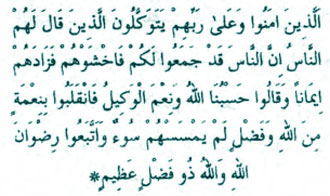 الَّذِينَ آمَنُوا وَعَلَىٰ رَبِّهِمْ يَتَوَكَّلُونَ الَّذِينَ قَالَ لَهُمُ
النَّاسُ إِنَّ النَّاسَ قَدْ جَمَعُوا لَكُمْ فَاخْشَوْهُمْ فَزَادَهُمْ
إِيمَاناً وَقَالُوا حَسْبُنَا اللهُ وَنِعْمَ الْوَكِيلُ فَانْقَلَبُوا بِنِعْمَةٍ
مِنَ اللهِ وَفَضْلٍ لَمْ يَمْسَسْهُمْ سُوءٌ وَاتَّبَعُوا رِضْوَانَ
اللهِ وَاللهُ ذُو فَضْلٍ عَظِيمٍ*